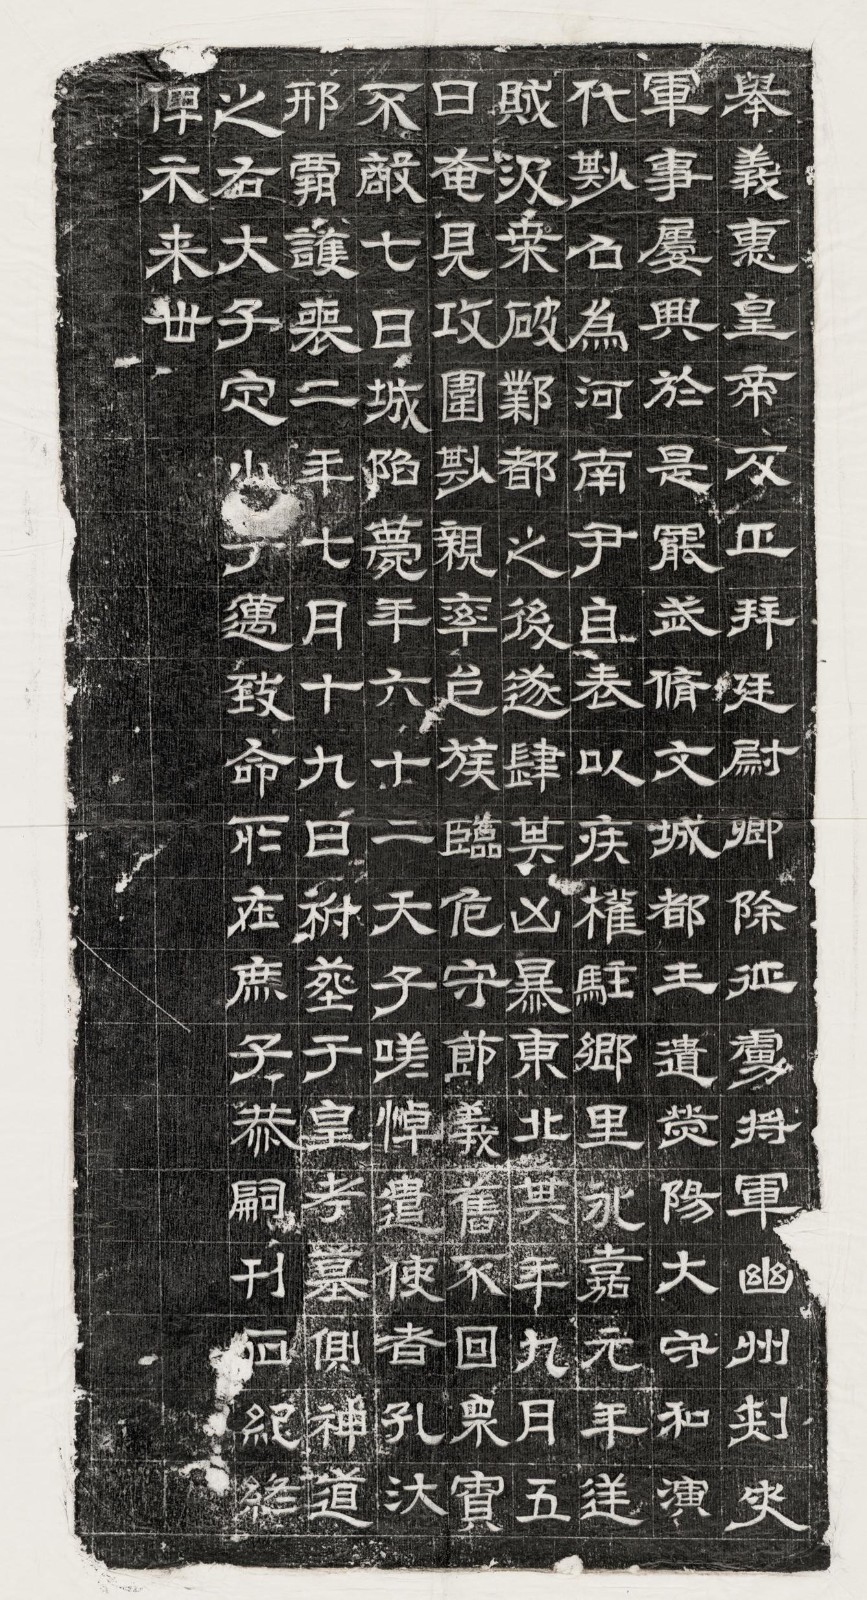 舉義惠皇帝反正拜廷尉卿除征虜將軍幽州刺史
軍事屢興於是罷武脩文城都王遣熒陽大守和演
代尠石為河南尹自表以疾權駐鄉里永嘉元年逆
賊汲桒破鄴都之後遂肆其凶暴東北其年九月五
日奄見攻圍尠親率邑族臨危守節義舊不回衆寡
不敵七日城陷薨年六十二天子嗟悼遣使者孔汰
邢霸護喪二年七月十九日祔葬于皇考墓側神道
之右大子定小子邁致命所在庶子恭嗣刊石紀終
俾示来世